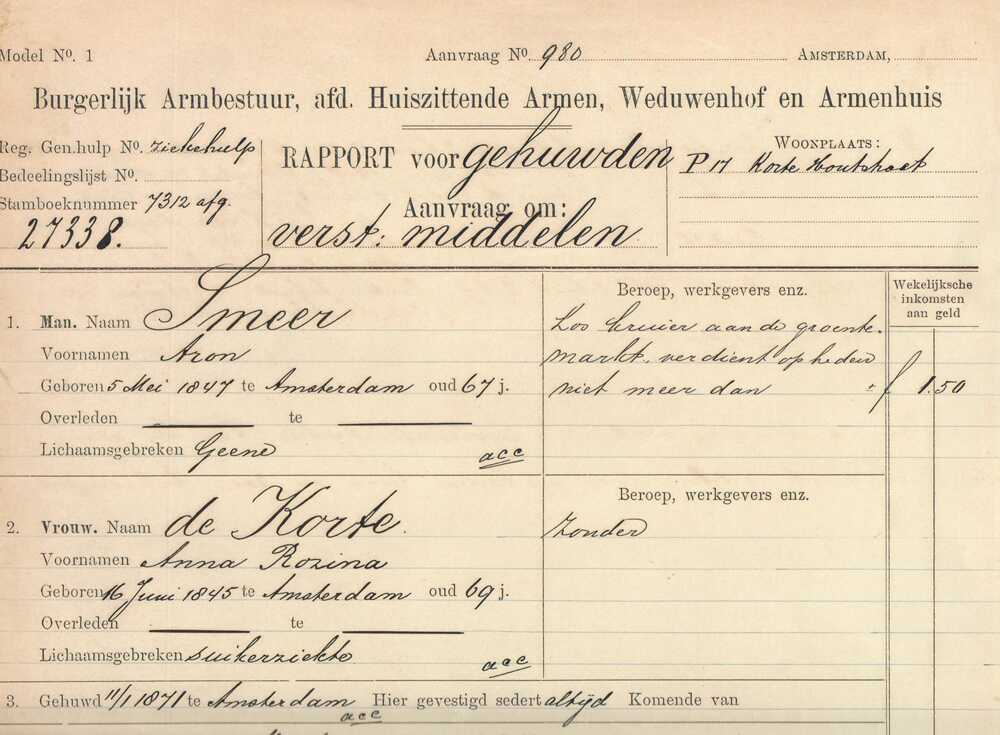 Model No. 1 Aanvraag No. 980 AMSTERDAM,
Burgerlijk Armbestuur, afd. Huiszittende Armen, Weduwenhof en Armenhuis
Reg. Gen.hulp No. ziekehulp
Bedeelingslijst No.
Stamboeknummer 7312 afg.
27338.
RAPPORT voor gehuwden
Aanvraag om:
verst: middelen
WOONPLAATS:
P 17 Korte Houtstraat
Wekelijksche
inkomsten
aan geld
1. Man. Naam Smeer
Voornamen Aron
Geboren 5 Mei 1847 te Amsterdam oud 67 j.
Overleden te
Lichaamsgebreken Geene acc
Beroep, werkgevers enz.
Los kruier aan de groente-
markt. verdient op heden
niet meer dan " f 1.50
2. Vrouw. Naam de Korte.
Voornamen Anna Rozina
Geboren 16 Juni 1845 te Amsterdam oud 69 j.
Overleden te
Lichaamsgebreken suikerziekte acc
Beroep, werkgevers enz.
Zonder
3. Gehuwd 11/1 1871 te Amsterdam Hier gevestigd sedert altijd Komende van
acc